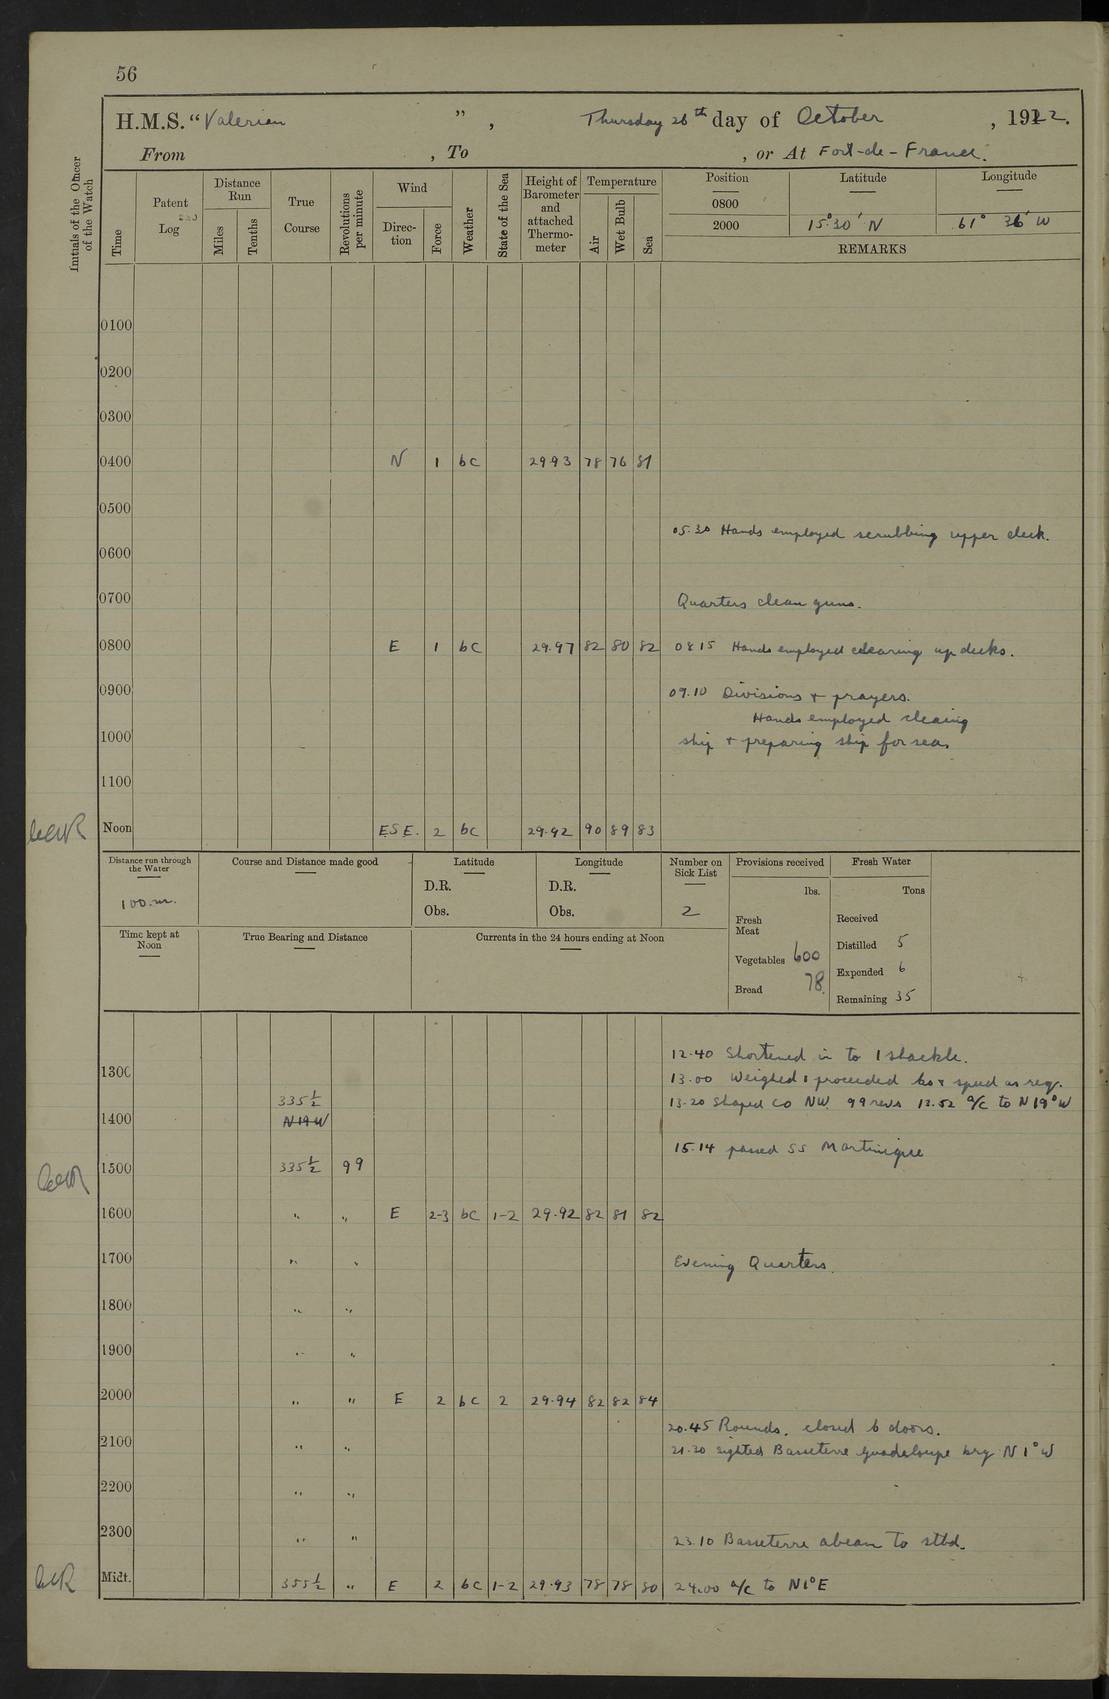 56
H.M.S. "Valerian", Thursday 26th day of October, 1922.
From , To , or At Fort-de-France.
Initials of the Officer of the Watch
Time
Patent Log
Distance Run
Miles
Tenths
True Course
Revolutions per minute
Wind
Direc-tion
Force
Weather
State of the Sea
Height of Barometer and attached Thermo-meter
Temperature
Air
Wet Bulb
Sea
Position Latitude Longitude
0800
2000 15° 30' N 61° 36' W
REMARKS
0100
0200
0300
0400 N 1 bc 29.93 78 76 81
0500
05.30 Hands employed scrubbing upper deck.
0600
0700 Quarters clean guns.
0800 E 1 bc 29.97 82 80 82 0815 Hands employed clearing up decks.
0900 09.10 Divisions & prayers.
Hands employed cleaing
1000 ship & preparing ship for sea.
1100
Noon ESE. 2 bc 29.92 90 89 83
Distance run through the Water
100.m.
Course and Distance made good
Latitude
D.R.
Obs.
Longitude
D.R.
Obs.
Number on Sick List
2
Provisions received
lbs.
Fresh Meat
Vegetables 600
Bread 78
Fresh Water
Tons
Received
Distilled 5
Expended 6
Remaining 35
Time kept at Noon
True Bearing and Distance
Currents in the 24 hours ending at Noon
12.40 Shortened in to 1 shackle.
1300 13.00 Weighed & proceeded co & speed as req.
335½ 13.20 Shaped co NW. 99 revs 13.52 a/c to N19°W
1400 N 19 W
15.14 passed SS Martinique
1500 335½ 99
1600 " " E 2-3 bc 1-2 29.92 82 81 82
1700 " " Evening Quarters.
1800 " "
1900 " "
2000 " " E 2 bc 2 29.94 82 82 84
20.45 Rounds. closed 6 doors.
2100 " " 21.20 sighted Basseterre Guadeloupe brg N 1° W
2200 " "
2300 " " 23.10 Basseterre abeam to stbd.
Midt. 355½ " E 2 bc 1-2 29.93 78 78 80 24.00 a/c to N1°E